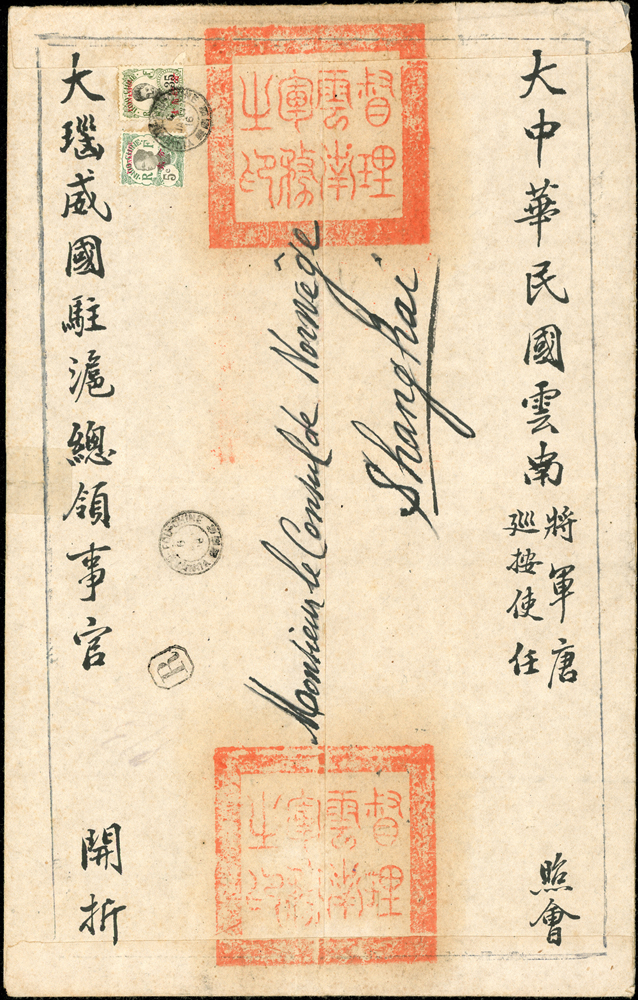 大中華民國雲南將軍唐
廵按使任
照會
督理
雲南
軍務
之印
Monsieur le Consul de Norwège
Shanghai
大瑙威國駐滬總領事官
開折
35
R F
5c
R
督理
雲南
軍務
之印